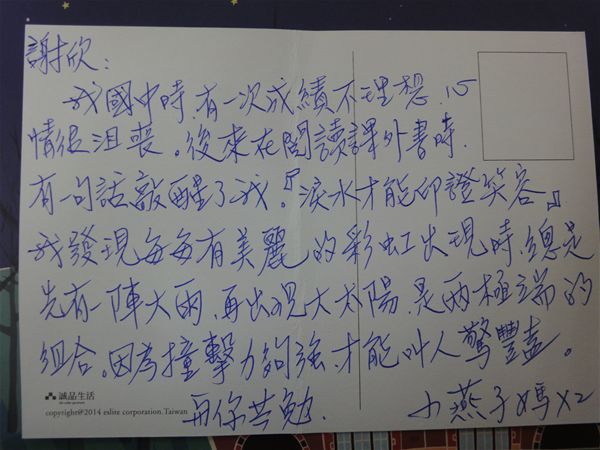 謝欣：
我國中時，有一次成績不理想，心
情很沮喪。後來在閱讀課外書時，
有一句話敲醒了我。『淚水才能印證笑容。』
我發現每每有美麗的彩虹出現時，總是
先有一陣大雨，再出現大太陽，是兩極端的
組合。因為撞擊力夠強，才能叫人驚豔。
與你共勉．
小燕子媽x2
誠品生活
the eslite spectrum
copyright@2014 eslite corporation.Taiwan